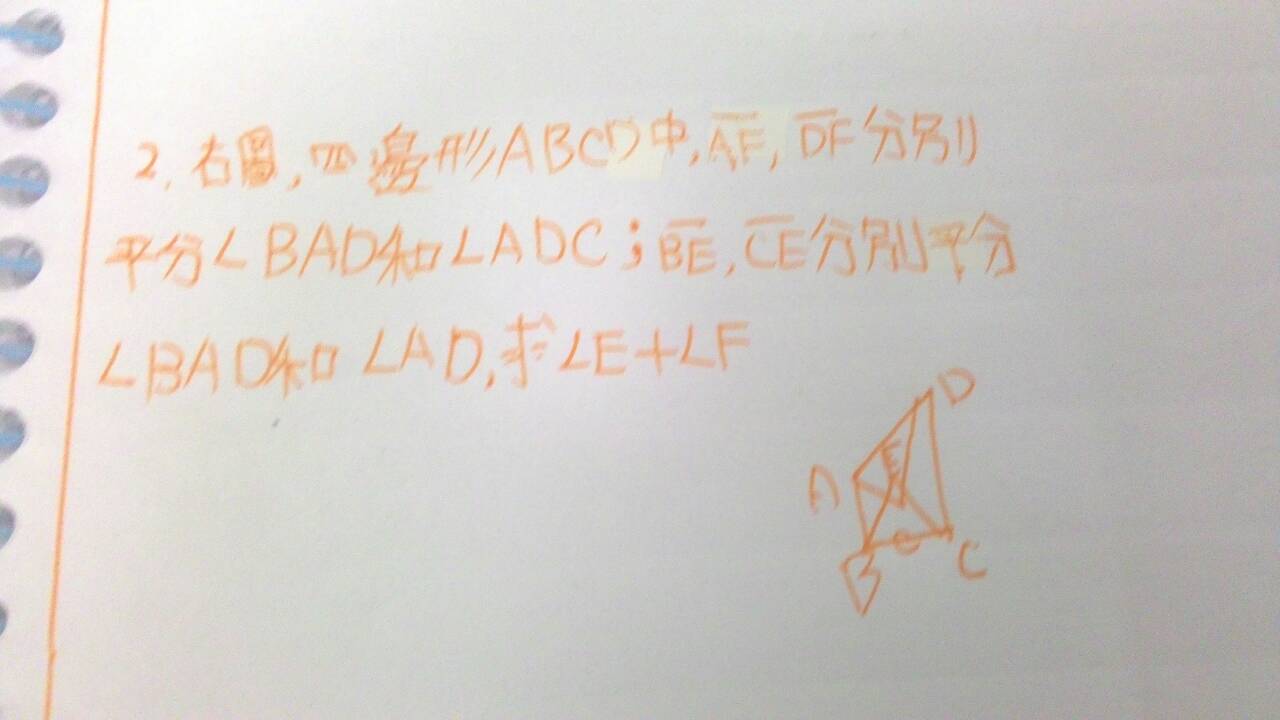 2. 右圖,四邊形ABCD中,AF, DF分別
平分∠BAD和∠ADC;BE, CE分別平分
∠BAD和∠AD,求∠E+∠F
D
E
A
B
C